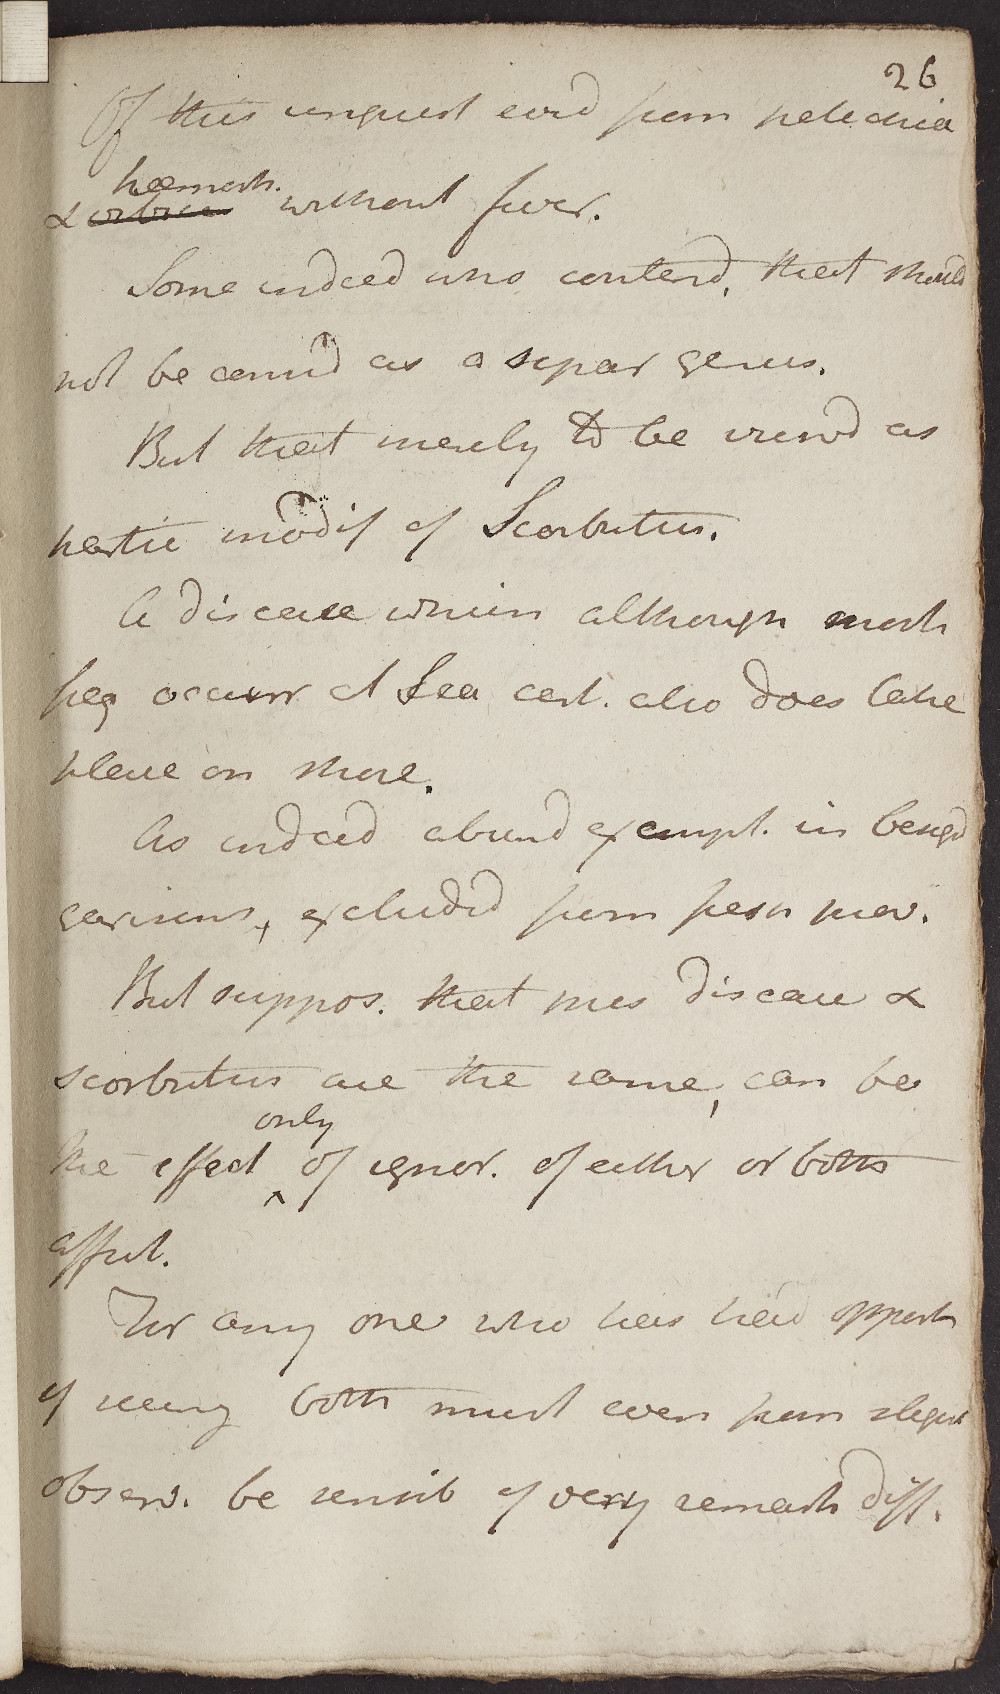 26
Of this unquest evid from petechiae
haemorh.
& without fever.
Some indeed who contend, that should
not be consid as a separ genus.
But that merely to be viewd as
partic modif of Scorbutus.
A disease which although most
freq occurr at Sea cert. also does take
place on shore.
As indeed abund exempl. in besiegd
garisons, excluded from fresh prov.
But suppos. that this disease &
scorbutus are the same, can be
only
the effect ^ of ignor. of either or both
affect.
For any one who has had opport
of seeing both must even from slight
observ. be sensib of very remark diff.